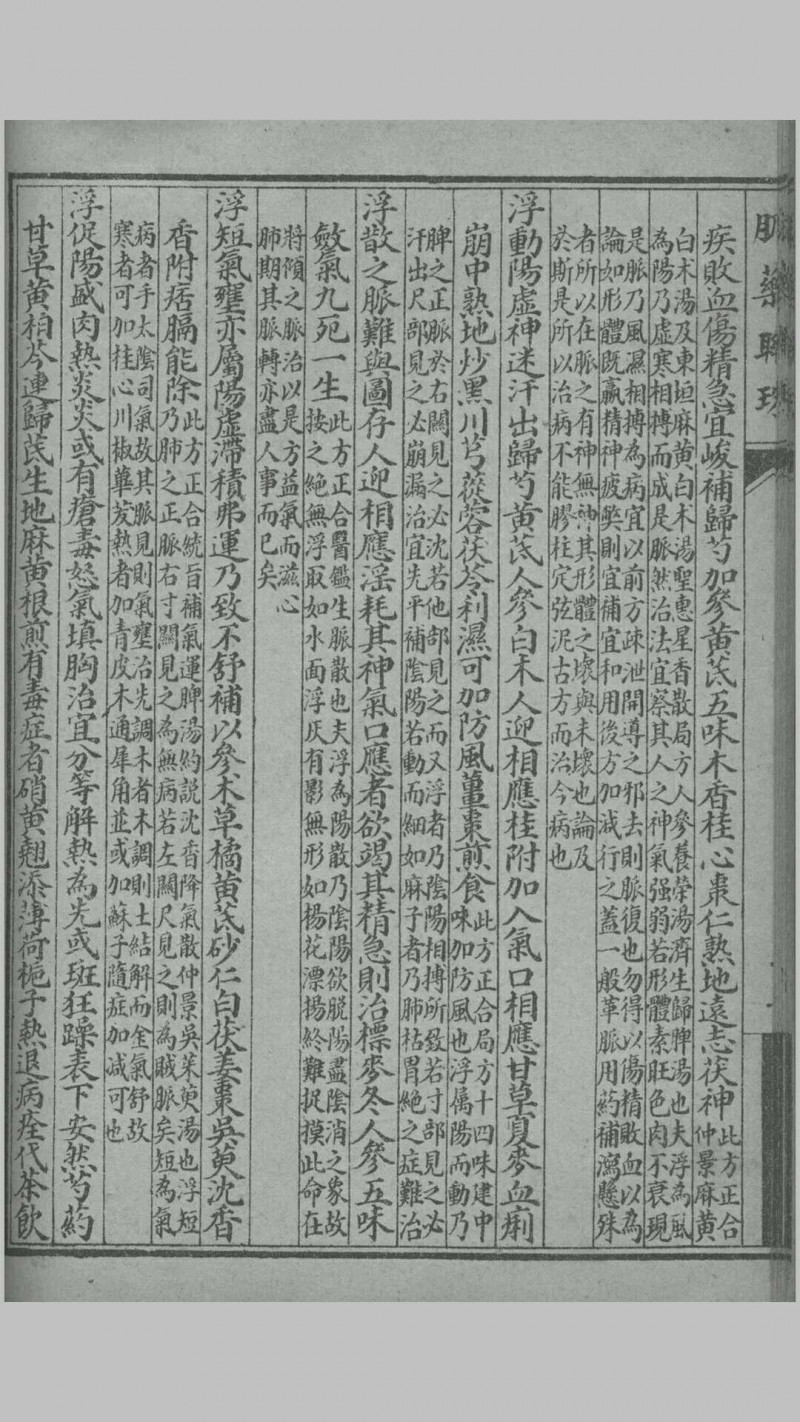 脈藥聯珠
疾敗血傷精急宜峻補歸芍加參黃芪五味木香桂心棗仁熟地遠志茯神此方正合仲景麻黃
白朮湯及東垣麻黃白朮湯聖惠星香散局方人參養榮湯濟生歸脾湯也夫浮為風
為陽乃虛寒相搏而成是脈然治法宜察其人之神氣强弱若形體素旺色肉不衰現
是脈乃風濕相搏為病宜以前方疎泄開導之邪去則脈復也勿得以傷精敗血以為
論如形體既羸精神疲獘則宜補宜和用後方加减行之蓋一般革脈用葯補瀉懸殊
者所以在脈之有神無神其形體之壞與未壞也論及
於斯是所以治病不能膠柱定弦泥古方而治今病也
浮動陽虛神迷汗出歸芍黃芪人參白朮人迎相應桂附加入氣口相應甘草夏麥血痢
崩中熟地炒黑川芎蓯蓉茯苓利濕可加防風薑棗煎食此方正合局方十四味建中
味加防風也浮属陽而動乃
脾之正脈於右關見之必沈若他部見之而又浮者乃陰陽相搏所致若寸部見之必
汗出尺部見之必崩漏治宜先平補陰陽若動而細如麻子者乃肺枯胃絶之症難治
浮散之脈難與圖存人迎相應淫耗其神氣口應者欲竭其精急則治標麥冬人參五味
斂氣九死一生此方正合醫鑑生脈散也夫浮為陽散乃陰陽欲脱陽盡陰消之象故
按之絶無浮取如水面浮灰有影無形如楊花漂揚終難捉摸此命在
將傾之脈治以是方益氣而滋心
肺期其脈轉亦盡人事而已矣
浮短氣壅亦屬陽虛滯積弗運乃致不舒補以參朮草橘黃芪砂仁白茯姜棗吳萸沈香
香附痞膈能除此方正合統旨補氣運脾湯約説沈香降氣散仲景吳茱萸湯也浮短
乃肺之正脈右寸關見之為無病若左關尺見之則為賊脈矣短為氣
病者手太陰司氣故其脈見則氣壅治先調木者木調則土結解而金氣舒故
寒者可加桂心川椒蓽茇熱者加青皮木通犀角並或加蘇子隨症加减可也
浮促陽盛肉熱炎炎或有瘡毒怒氣填胸治宜分等解熱為先或斑狂躁表下安然芍葯
甘草黃柏芩連歸芪生地麻黃根煎有毒症者硝黃翹添薄荷梔子熱退病痊代茶飲